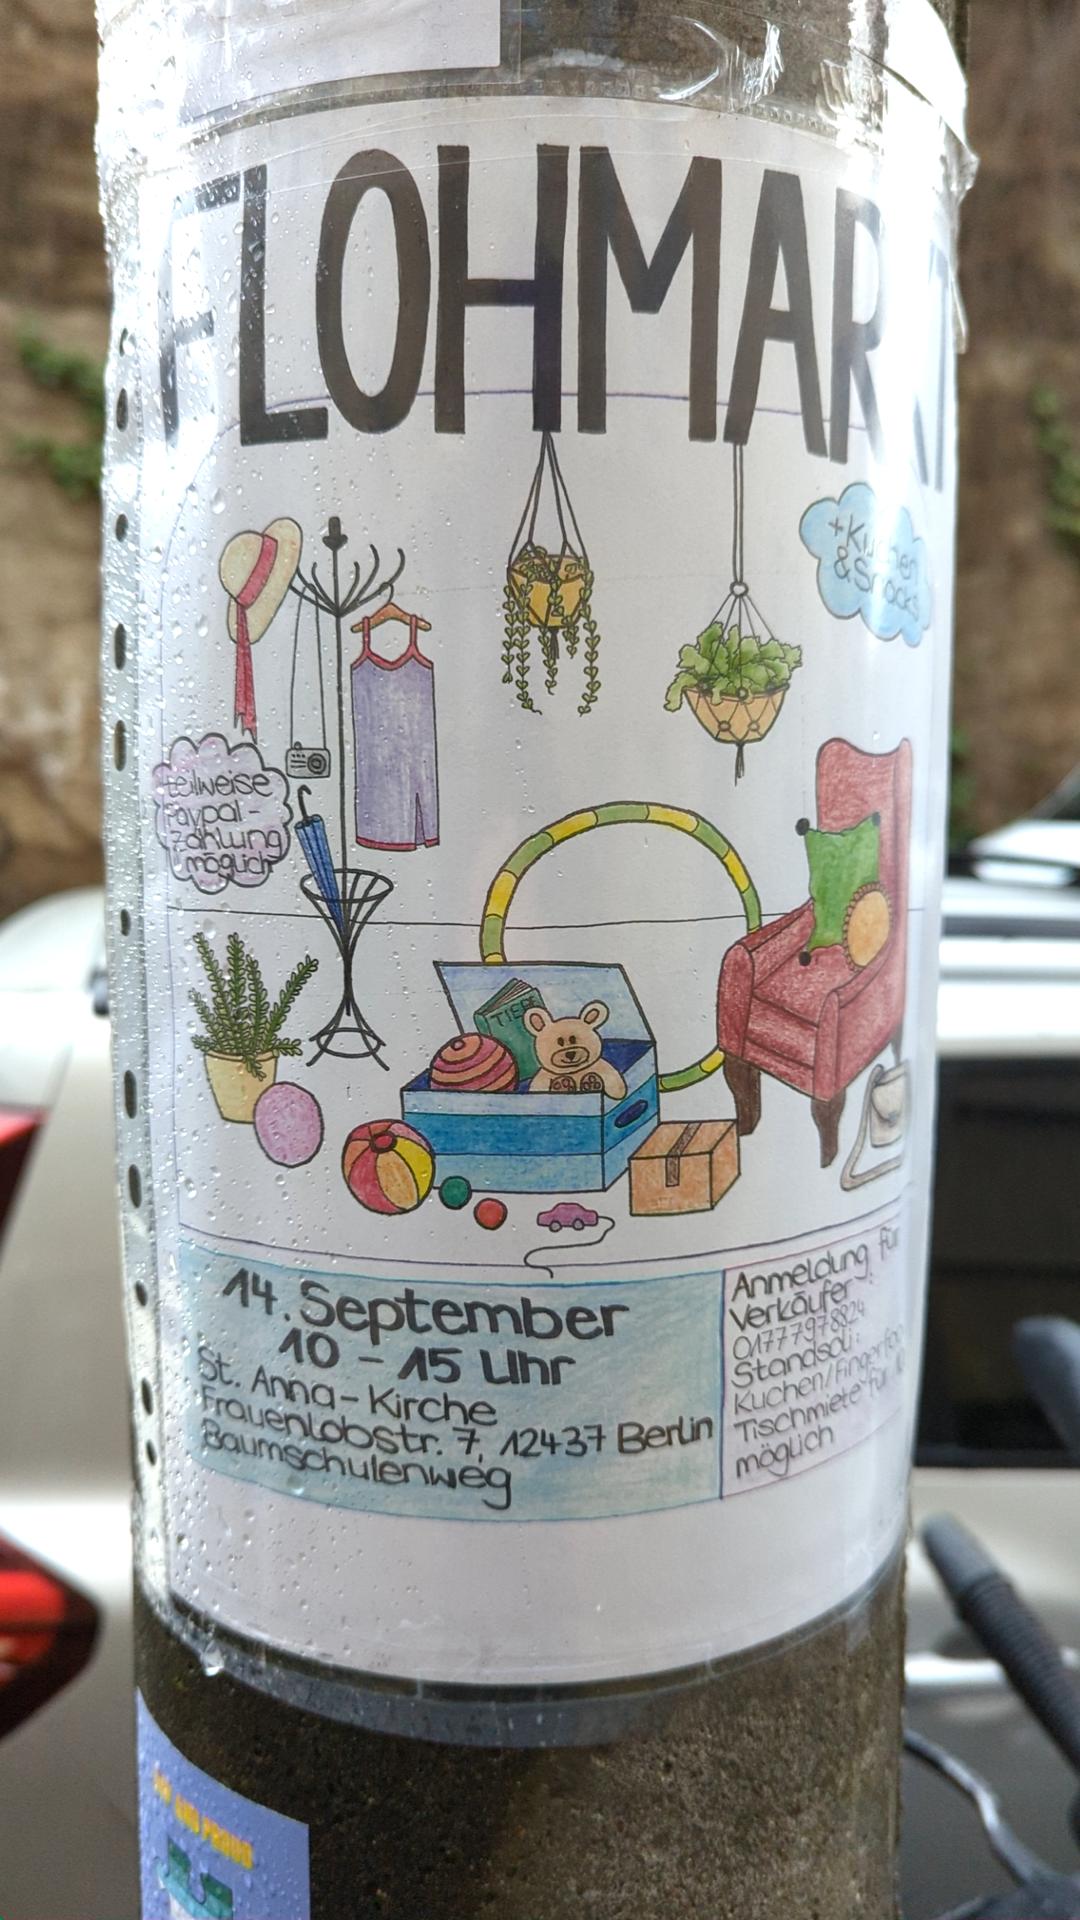 FLOHMARKT
+Kuchen
& Snacks
teilweise
Paypal-
Zahlung
möglich
TIERE
14. September
10 - 15 Uhr
St. Anna-Kirche
Frauenlobstr. 7, 12437 Berlin
Baumschulenweg
Anmeldung für
Verkäufer:
01777978824
Standsoli:
Kuchen/Fingerfood
Tischmiete für
möglich